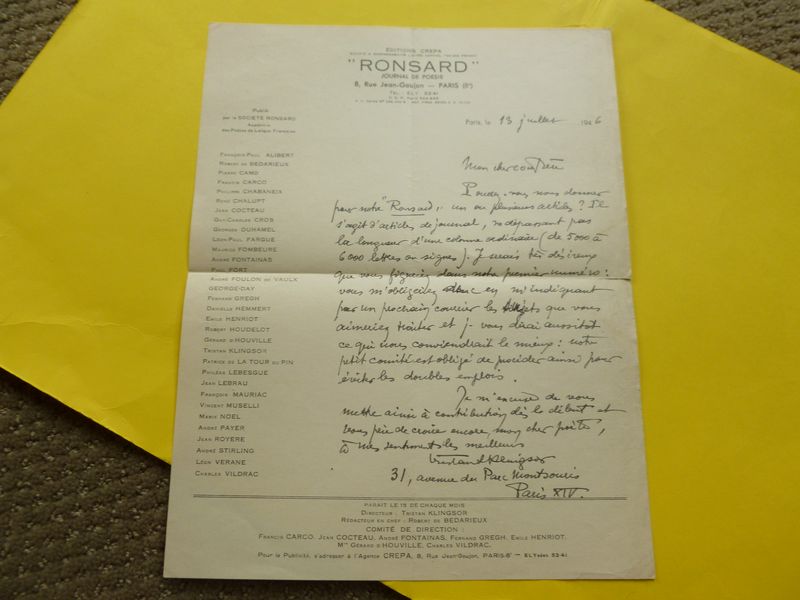 ÉDITIONS CREPA
"RONSARD"
JOURNAL DE POÉSIE
8, Rue Jean-Goujon — PARIS (8e)
Tél. : ELY 53-41
Paris, le 13 juillet 1946
Publié
par la SOCIÉTÉ RONSARD
Académie
des Poètes de Langue Française
François-Paul ALIBERT
Robert de BEDARIEUX
Pierre CAMO
Francis CARCO
Philippe CHABANEIX
René CHALUPT
Jean COCTEAU
Guy-Charles CROS
Georges DUHAMEL
Léon-Paul FARGUE
Maurice FOMBEURE
André FONTAINAS
Paul FORT
André FOULON de VAULX
GEORGE-DAY
Fernand GREGH
Danielle HEMMERT
Emile HENRIOT
Robert HOUDELOT
Gérard d'HOUVILLE
Tristan KLINGSOR
Patrice de LA TOUR du PIN
Philéas LEBESGUE
Jean LEBRAU
François MAURIAC
Vincent MUSELLI
Marie NOEL
André PAYER
Jean ROYERE
André STIRLING
Léon VERANE
Charles VILDRAC
Mon cher confrère
Pouvez-vous nous donner
pour notre "Ronsard", un ou plusieurs articles ? Il
s'agit d'articles de journal, ne dépassant pas
la longueur d'une colonne ordinaire (de 5000 à
6000 lettres ou signes). Je serais très désireux
que vous figuriez dans notre premier numéro :
vous m'obligeriez donc en m'indiquant
par un prochain courrier les sujets que vous
aimeriez traiter et je vous dirai aussitôt
ce qui nous conviendrait le mieux : notre
petit comité est obligé de procéder ainsi pour
éviter les doubles emplois.
Je m'excuse de vous
mettre ainsi à contribution dès le début et
vous prie de croire encore, mon cher poète,
à mes sentiments les meilleurs
Tristan Klingsor
31, avenue du Parc Montsouris
Paris XIV.
PARAIT LE 15 DE CHAQUE MOIS
Directeur : Tristan KLINGSOR
Rédacteur en chef : Robert de BEDARIEUX
COMITÉ DE DIRECTION :
Francis CARCO, Jean COCTEAU, André FONTAINAS, Fernand GREGH, Emile HENRIOT,
Mme Gérard d'HOUVILLE, Charles VILDRAC.
Pour la Publicité, s'adresser à l'Agence CREPA, 8, Rue Jean-Goujon, PARIS-8e — ELYsées 53-41